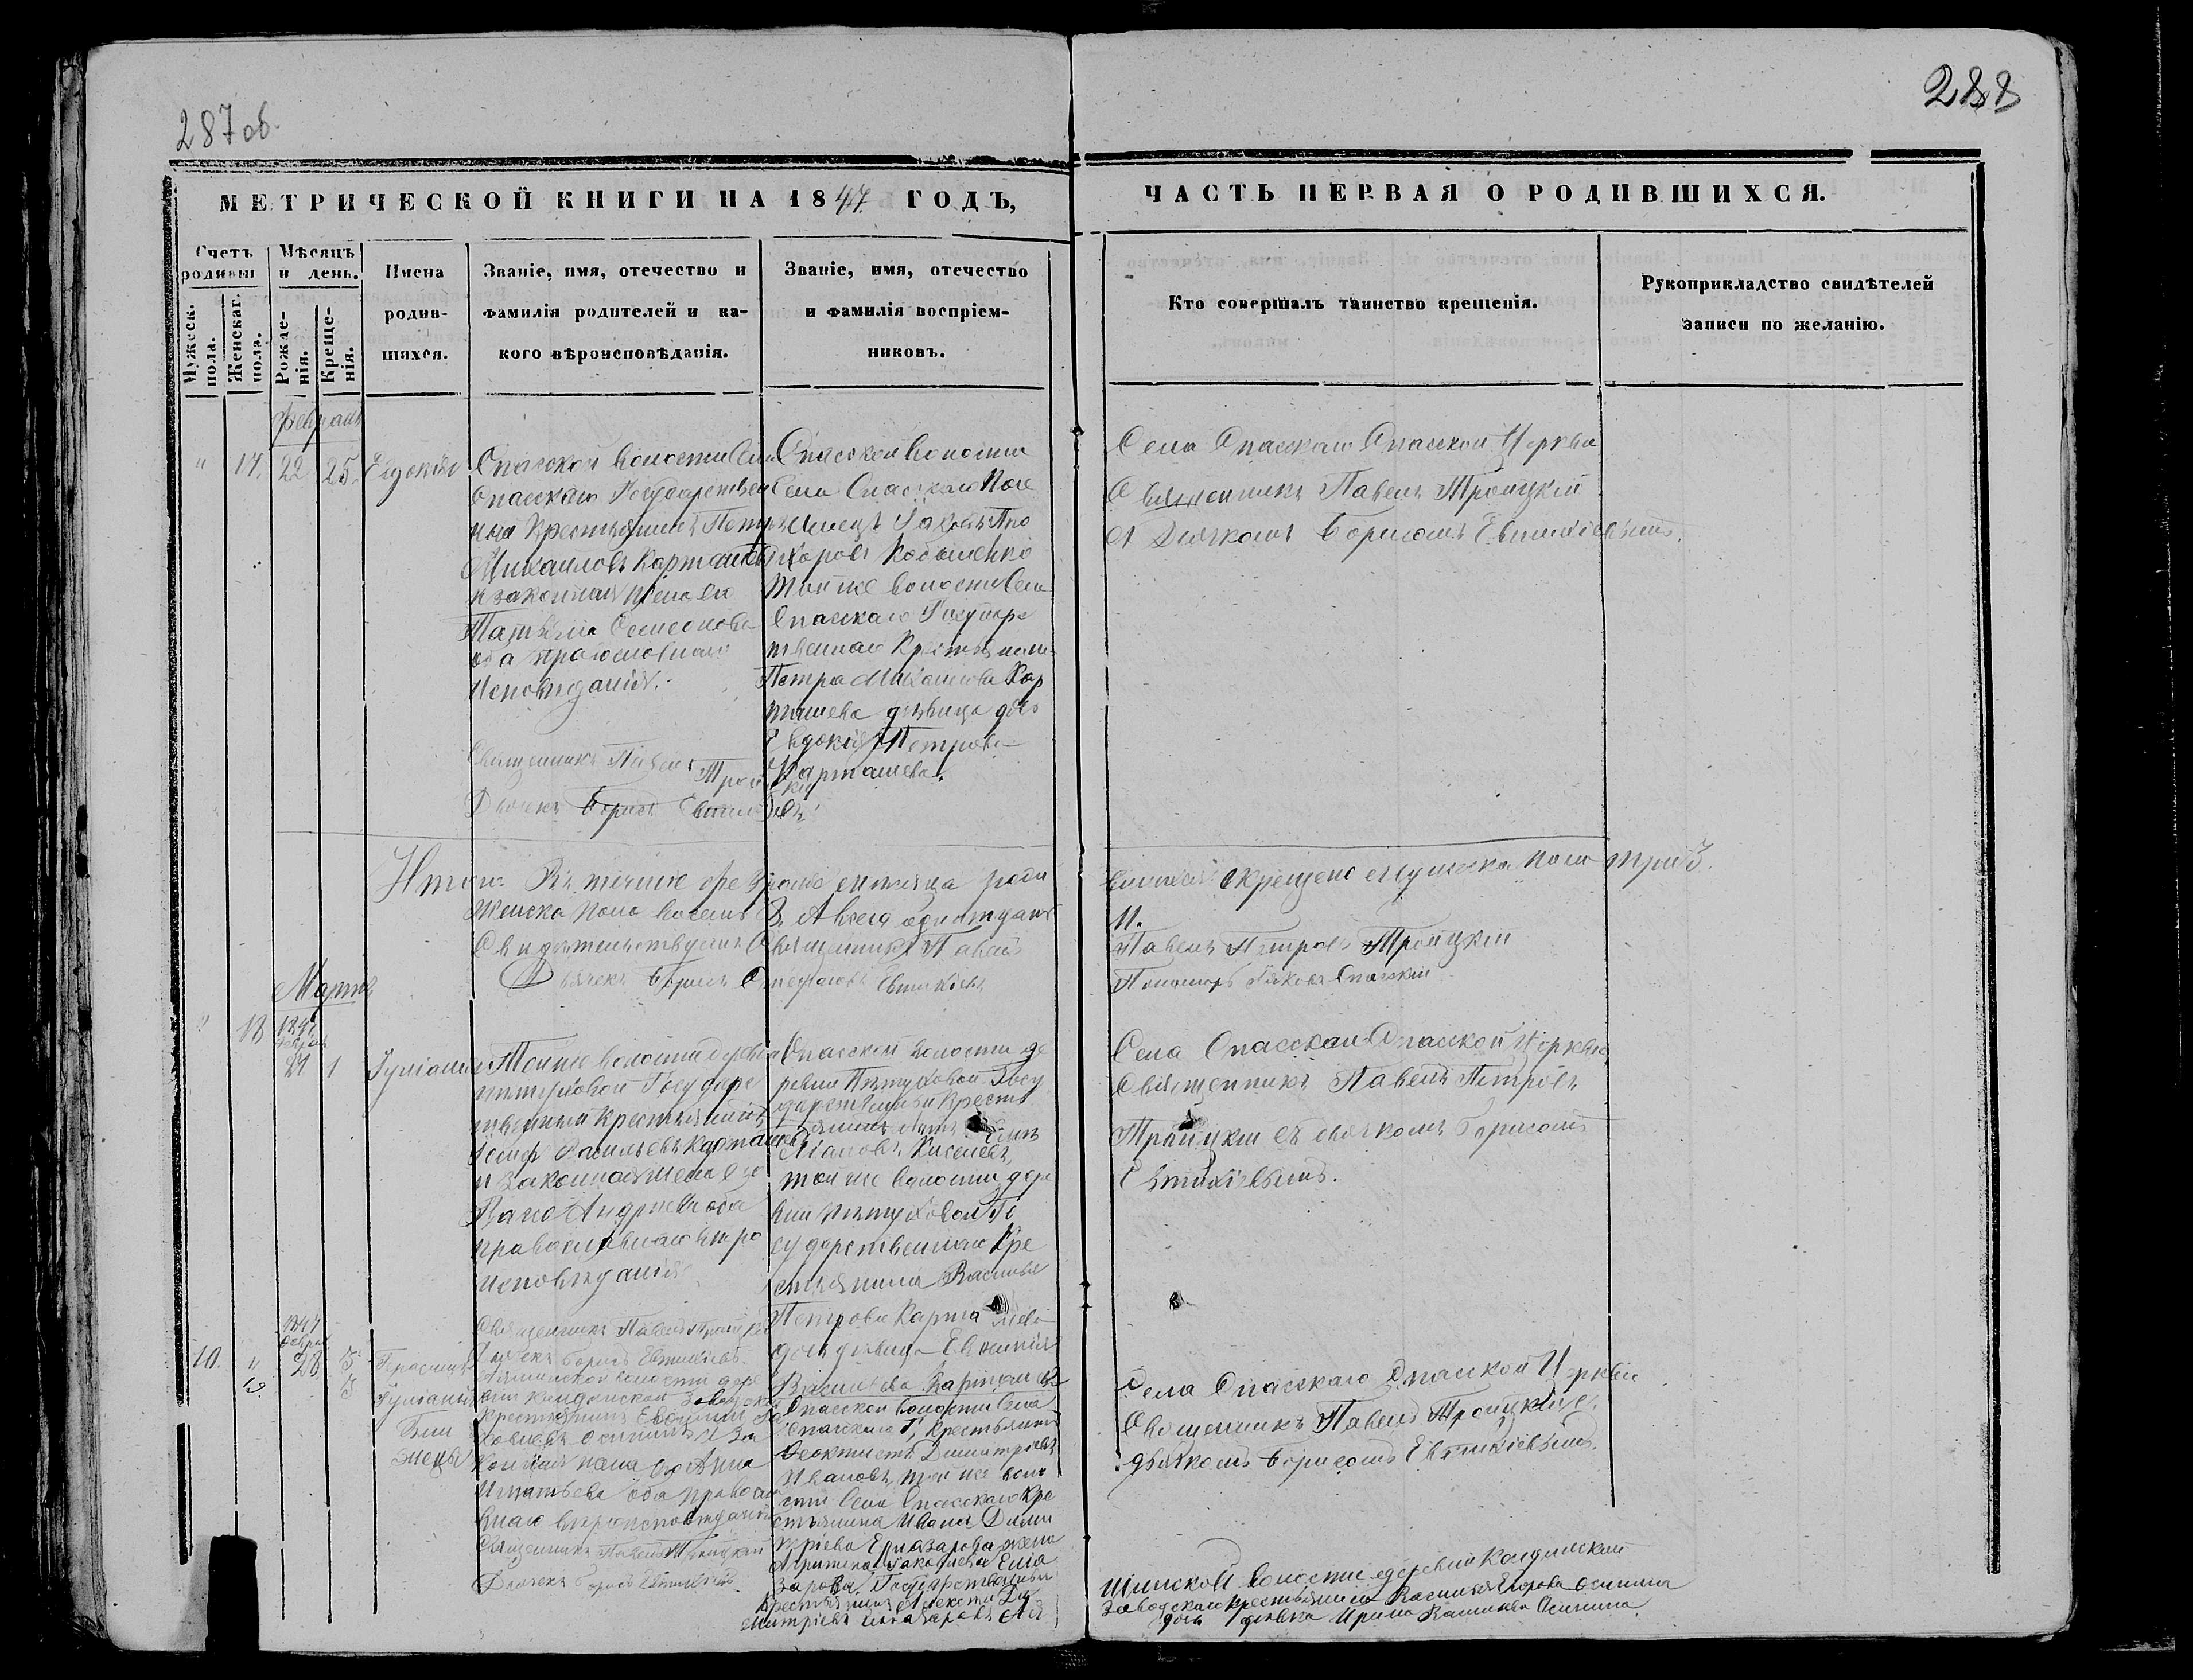 287 об.
288
МЕТРИЧЕСКОЙ КНИГИ НА 1847 ГОДЪ,
ЧАСТЬ ПЕРВАЯ О РОДИВШИХСЯ.
Счетъ родивш
Мужеск. пола.
Женскаг. пола.
Мѣсяцъ и день.
Рожде-нія.
Креще-нія.
Имена
родив-
шихся.
Званіе, имя, отечество и
фамилія родителей и ка-
кого вѣроисповѣданія.
Званіе, имя, отечество
и фамилія воспріем-
никовъ.
Кто совершалъ таинство крещенія.
Рукоприкладство свидѣтелей
записи по желанію.
Февраль
" 17. 22 25. Евдокія
Спасской волости Села
Спасскаго Государствен
ный Крестьянинъ Петръ
Михаиловъ Карташевъ
и законная жена его
Татьяна Семенова
оба православнаго
исповѣданія.
Священникъ Павелъ Троицкій
Дьячекъ Борисъ
Спасской волости
Села Спасскаго
той же волости Села
Спасскаго Государ
ственнаго Крестьянина
Петра Михаилова Кар
ташева дѣвица дочь
Евдокія Петрова
Карташева.
Села Спасскаго Спасской Церкви
Священникъ Павелъ Троицкій
съ Дьячкомъ Борисомъ Евтихіевымъ.
Итого Въ теченіе февраля мѣсяца роди
крещено Мужеска пола три 3.
Женска пола восемь 8. А всего одиннадцать
11.
Свидѣтельствуемъ Священникъ Павелъ Петровъ Троицкій
Дьячекъ Борисъ Евтихіевъ
Пономарь Іаковъ Спасскій
Мартъ
" 18 1847 Февраля 24 1 Іуліанія
Тойже волости деревни
Пѣтуховой Государ
ственный Крестьянинъ
Васильевъ Карташевъ
и законная жена его
Андреева оба
православнаго вѣро
исповѣданія
Священникъ Павелъ Троицкій
Дьячекъ Борисъ Евтихіевъ.
Спасской волости де
ревни Пѣтуховой Госу
дарственный Кресть
янинъ
Киселевъ,
той же волости дере
вни Пѣтуховой Го
сударственнаго Кре
стьянина Василья
Петрова Карташева
дочь дѣвица Евгенія
Васильева Карташева
Села Спасскаго Спасской Церкви
Священникъ Павелъ Петровъ
Троицкій съ дьячкомъ Борисомъ
Евтихіевымъ.
1847 Февра
10. " 28 3 Герасимъ
3 Іуліанія
Близ
нецы
волости дере
вни Кондомской Заводской
Крестьянинъ
Осининъ и За
конная жена его Анна
Игнатьева оба православ
наго вѣроисповѣданія
Священникъ Павелъ Троицкій
Дьячекъ Борисъ Евтихіевъ.
Спасской волости Села
Спасскаго Г. Крестьянинъ
Феоктистъ Димитріевъ
Ивановъ, той же воло
сти Села Спасскаго Кре
стьянина Ивана Дими
тріева Елиазарова жена
Іаковлева Елиа
зарова, Государственный
Крестьянинъ Алексѣй Ди
митріевъ Елиазаровъ
Села Спасскаго Спасской Церкви
Священникъ Павелъ Троицкій съ
дьячкомъ Борисомъ Евтихіевымъ.
волости деревни Кондомской
Заводскаго крестьянина Василья Егорова Осинина
дочь дѣвка Ирина Васильева Осинина.